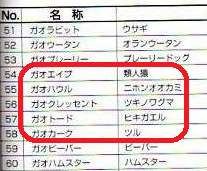 No. 名称
51 ガオラビット ウサギ
52 ガオウータン オランウータン
53 ガオプレーリー プレーリードッグ
54 ガオエイプ 類人猿
55 ガオハウル ニホンオオカミ
56 ガオクレッセント ツキノワグマ
57 ガオトード ヒキガエル
58 ガオカーク ツル
59 ガオビーバー ビーバー
60 ガオハムスター ハムスター